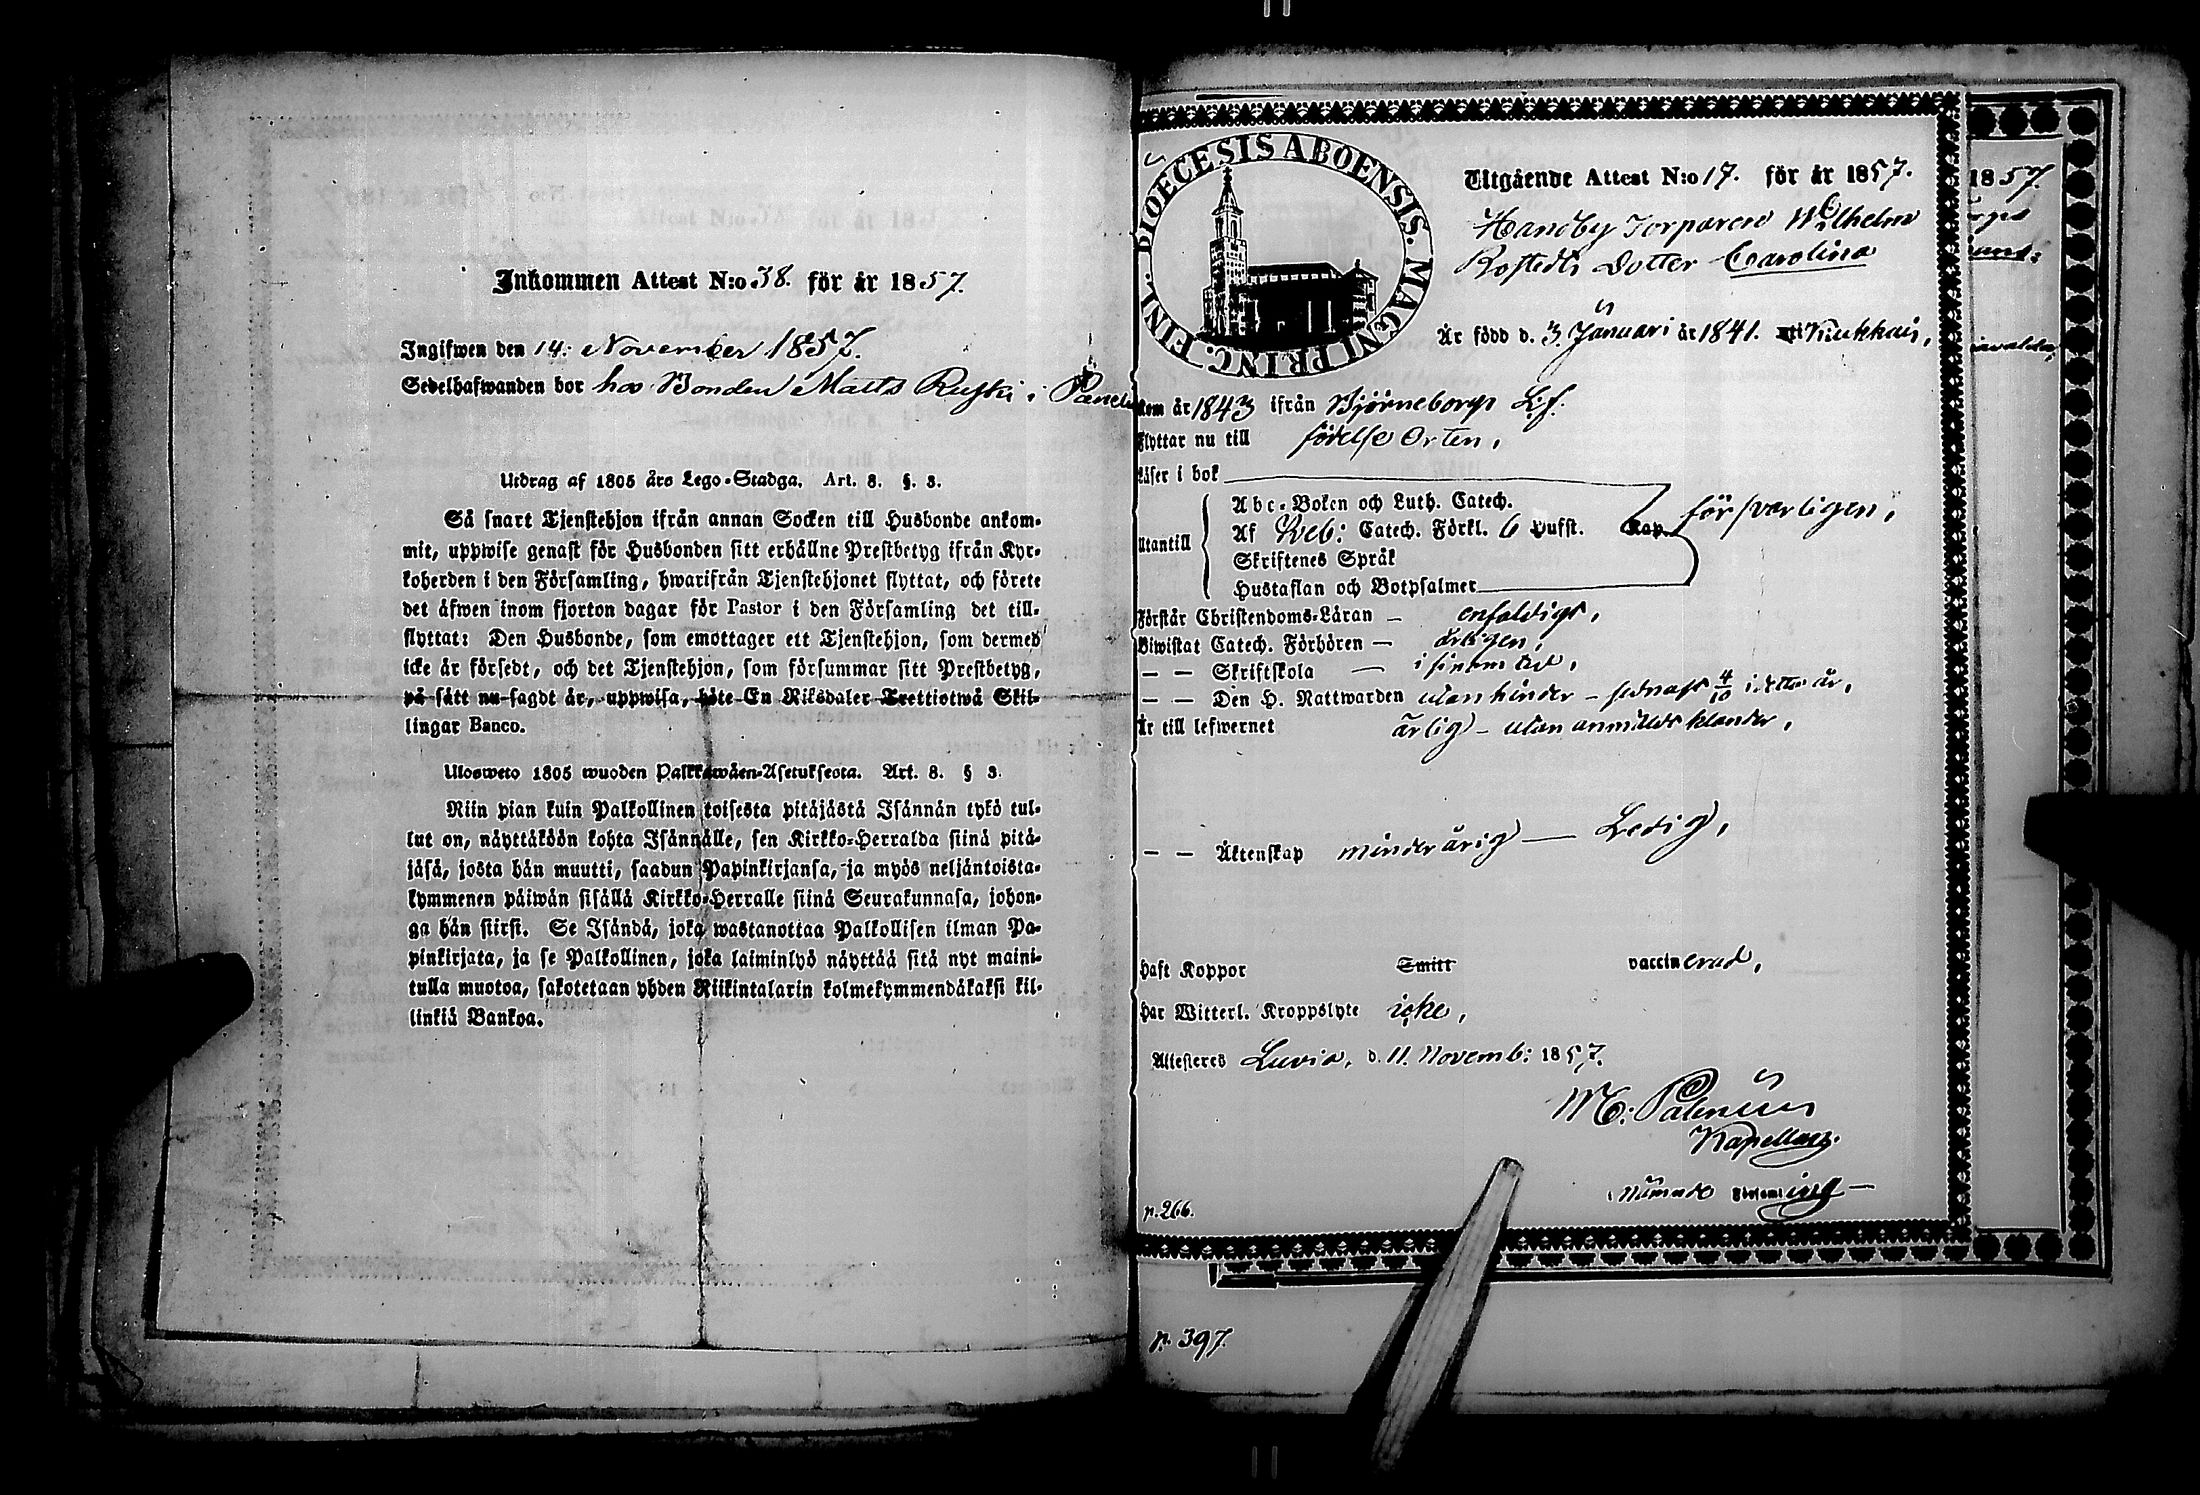 Inkommen Attest N:o 38. för år 1857.
Ingifwen den 14: November 1857.
Sedelhafwanden bor hos Bonden Matts Ruski i
Utdrag af 1805 års Lego-Stadga. Art. 8. §. 3.
Så snart Tjenstehjon ifrån annan Socken till Husbonde ankom-
mit, uppwise genast för Husbonden sitt erhållne Prestbetyg ifrån Kyr-
koherden i den Församling, hwarifrån Tjenstehjonet flyttat, och förete
det äfwen inom fjorton dagar för Pastor i den Församling det till-
flyttat: Den Husbonde, som emottager ett Tjenstehjon, som dermed
icke är försedt, och det Tjenstehjon, som försummar sitt Prestbetyg,
på sätt nu sagdt är, uppwisa, böte En Riksdaler Trettiotwå Skil-
lingar Banco.
Ulosweto 1805 wuoden Palkkawäen-Asetuksesta. Art. 8. § 3.
Niin pian kuin Palkollinen toisesta pitäjästä Isännän tykö tul-
lut on, näyttäköön kohta Isännälle, sen Kirkko-Herralda siinä pitä-
jäsä, josta hän muutti, saadun Papinkirjansa, ja myös neljäntoista-
kymmenen päiwän sisällä Kirkko-Herralle siinä Seurakunnasa, johon-
ga hän siirsi. Se Isändä, joka wastanottaa Palkollisen ilman Pa-
pinkirjata, ja se Palkollinen, joka laiminlyö näyttää sitä nyt maini-
tulla muotoa, sakotetaan yhden Riikintalarin kolmekymmendäkaksi kil-
linkiä Bankoa.
DIOECESIS ABOENSIS. MAGNI PRINC. FINL.
Utgående Attest N:o 17. för år 1857.
Hanoby Torparen Wilhelm
Rostedts Dotter Carolina
Är född d. 3 Januari år 1841. i Kiukkais,
kom år 1843 ifrån Björneborgs Lf.
Flyttar nu till födelse Orten,
Läser i bok
Utantill
Abc-Boken och Luth. Catech.
Af Reb: Catech. Förkl. 6 Hufst. Kap.
Skriftenes Språk
Hustaflan och Botpsalmer
försvarligen,
Förstår Christendoms-Läran – enfaldigt,
Biwistat Catech. Förhören – årligen,
— — Skriftskola — i sinom tid,
— — Den H. Nattwarden utan hinder – sednast 4/10 i detta år,
Är till lefwernet ärlig – utan anmäldt klander,
— — Äktenskap minderårig — Ledig,
Haft Koppor Smitt vaccinerad,
Har Witterl. Kroppslyte icke,
Attesteras Luvia, d. 11. Novemb: 1857.
M: Palenius
Kapellan.
i nämnde Församling —
p. 266.
p. 397.
1857.